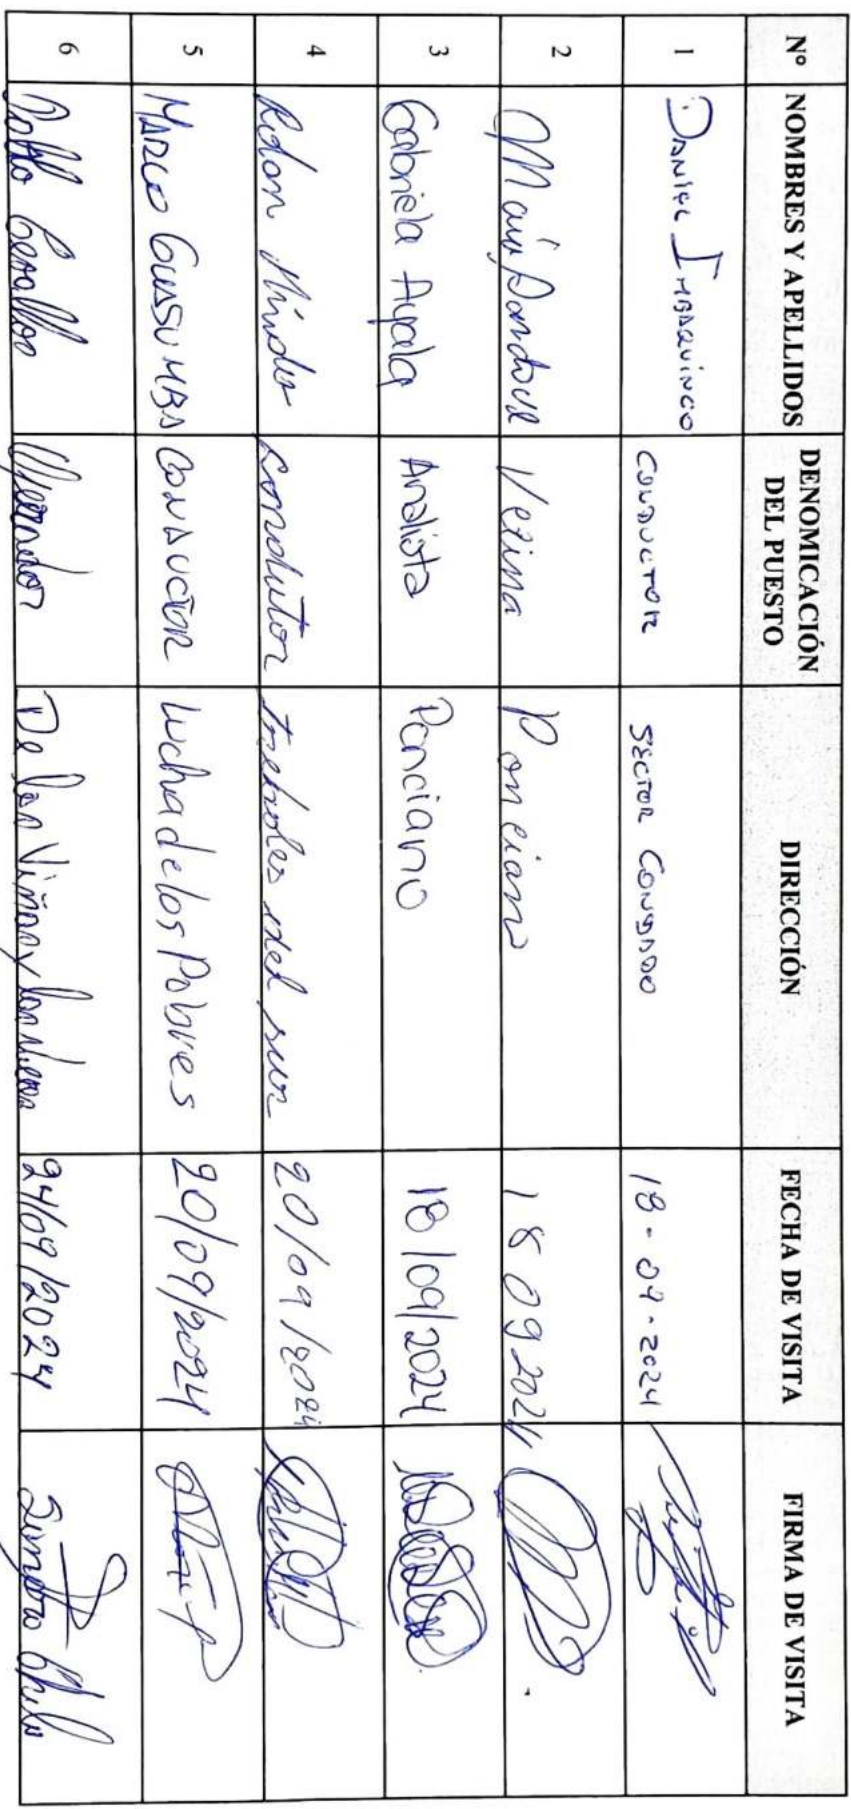 N° NOMBRES Y APELLIDOS DENOMICACIÓN DEL PUESTO DIRECCIÓN FECHA DE VISITA FIRMA DE VISITA
1 DANIEL IMBAQUINGO CONDUCTOR SECTOR CONDADO 18-09-2024
2 Vecina Ponciano 18 09 2024
3 Gabriela Ayala Analista Ponciano 18/09/2024
4 conductor del sur 20/09/2024
5 MARCO GUASUMBA CONDUCTOR Lucha de los Pobres 20/09/2024
6 Pablo Cevallos Operador De las Viñas y las 24/09/2024